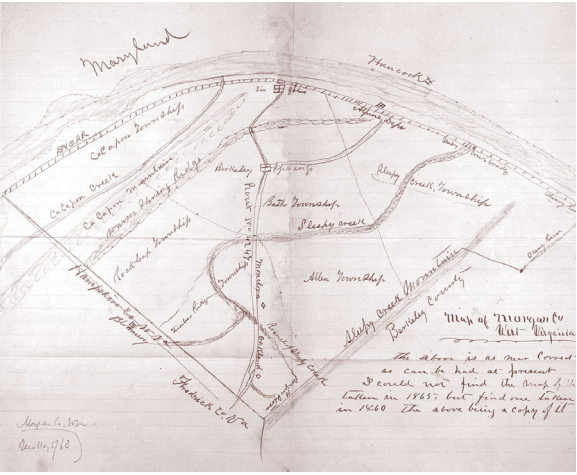 Maryland
Hancock
Sir Johns
Alpine Depo
River
CaCapon Township
CaCapon Creek
CaCapon Mountain
Warm Spring Ridge
Berkeley Springs
Sleepy Creek Township
Bath Township
Sleepy creek
Rock Gap Township
Allen Township
Timber Ridge Township
Oakland
Sleepy Creek Mountain
Berkeley County
Hampshire Co W. Va
Frederick Co. Va
Map of Morgan Co
West Virginia
the above is as near Correct
as can be had at present
I could not find the map of the
taken in 1865, but find one taken
in 1860 the above being a copy of it
Morgan Co. W Va.